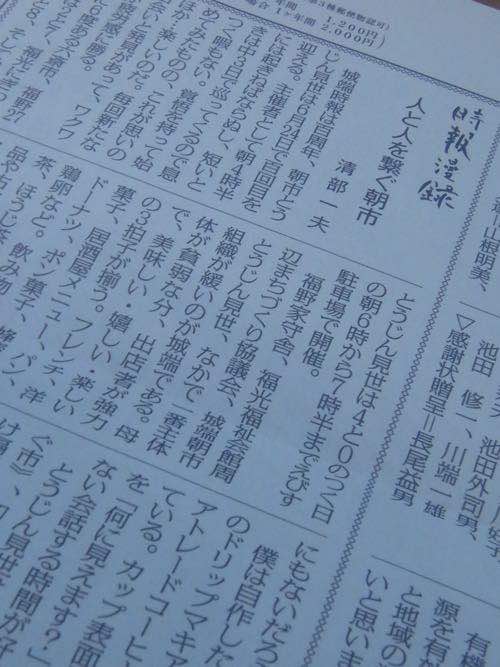 第3種郵便物認可)
年間 1,200円
場合1ヶ年間 2,000円
山根明美、
池田外司男、
池田 修一、川端一雄
▽感謝状贈呈＝長尾益男
有機
源を有
と地域の
いと思いま
時報漫録
人と人を繋ぐ朝市
清部 一夫
城端時報は百周年、朝市どう
じん見世は6月24日で百回目を
迎える。主催者として朝4時半
には起きねばならぬし、短いと
きは中3日で巡ってくるので息
つく暇もない。覚悟を持って始
めてみたものの、これが思いの
ほか楽しいのだ。毎回新たな
発見があって、ワクワク
が疲労感に勝る。
6度ある大倉市、福野27
と7、そして福光に
とうじん見世は4と0のつく日
の朝6時から7時半までえびす
駐車場で開催。
福野家守舎、福光福祉会館周
辺まちづくり協議会、城端朝市
とうじん見世、なかで一番主体
組織が緩いのが城端である。母
体が貧弱な分、出店者が強力
で、美味しい・嬉しい・楽しい
の3拍子が揃う。フレンチ、洋
菓子、居酒屋メニュー、パン、
ドーナツ、ポン菓子、
鶏卵など。飲み物
茶、ほうじ茶
品や古
にもないだろ
僕は自作した
のドリップマキア
アトレードコーヒ
ている。カップ表面
を「何に見えます？」
ない会話する時間が
とうじん見世
ぐ市》、